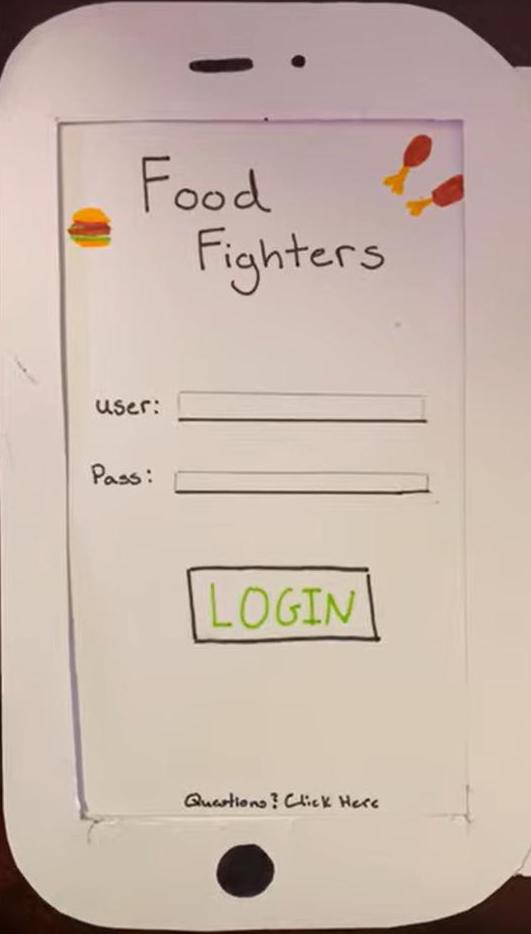 Food
Fighters
user:
Pass:
LOGIN
Questions? Click Here